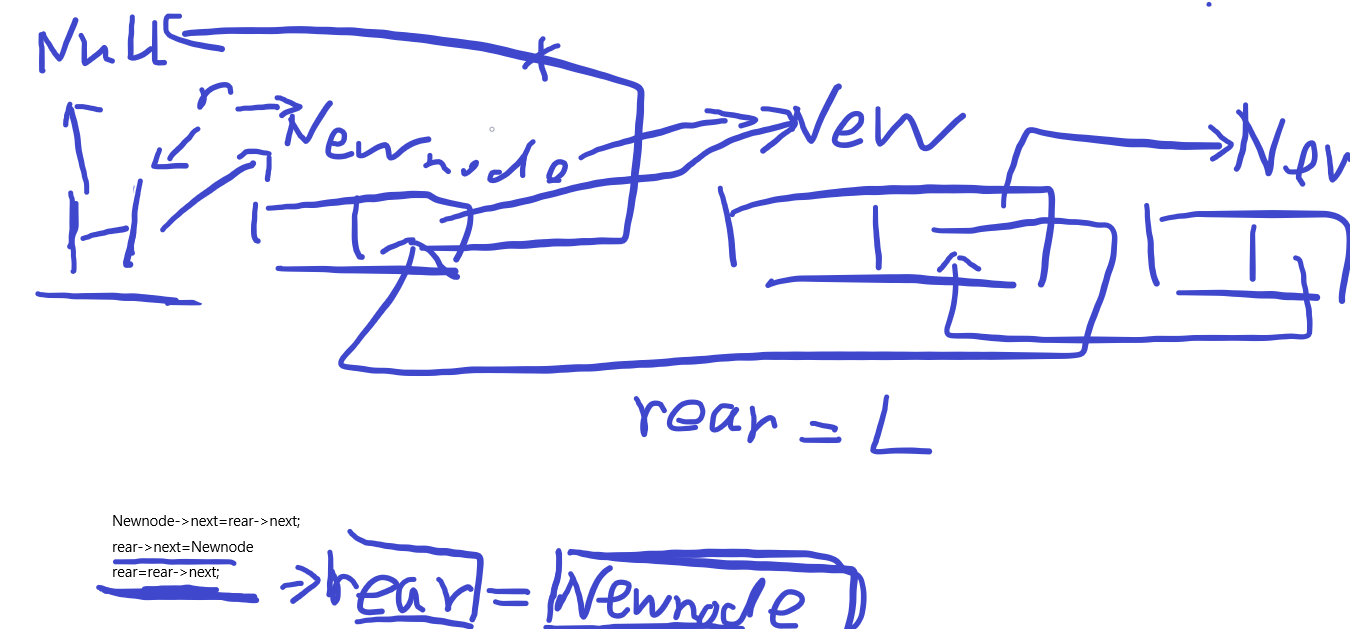 Null
r
Newnode
New
New
H
rear = L
Newnode->next=rear->next;
rear->next=Newnode
rear=rear->next;
rear = Newnode